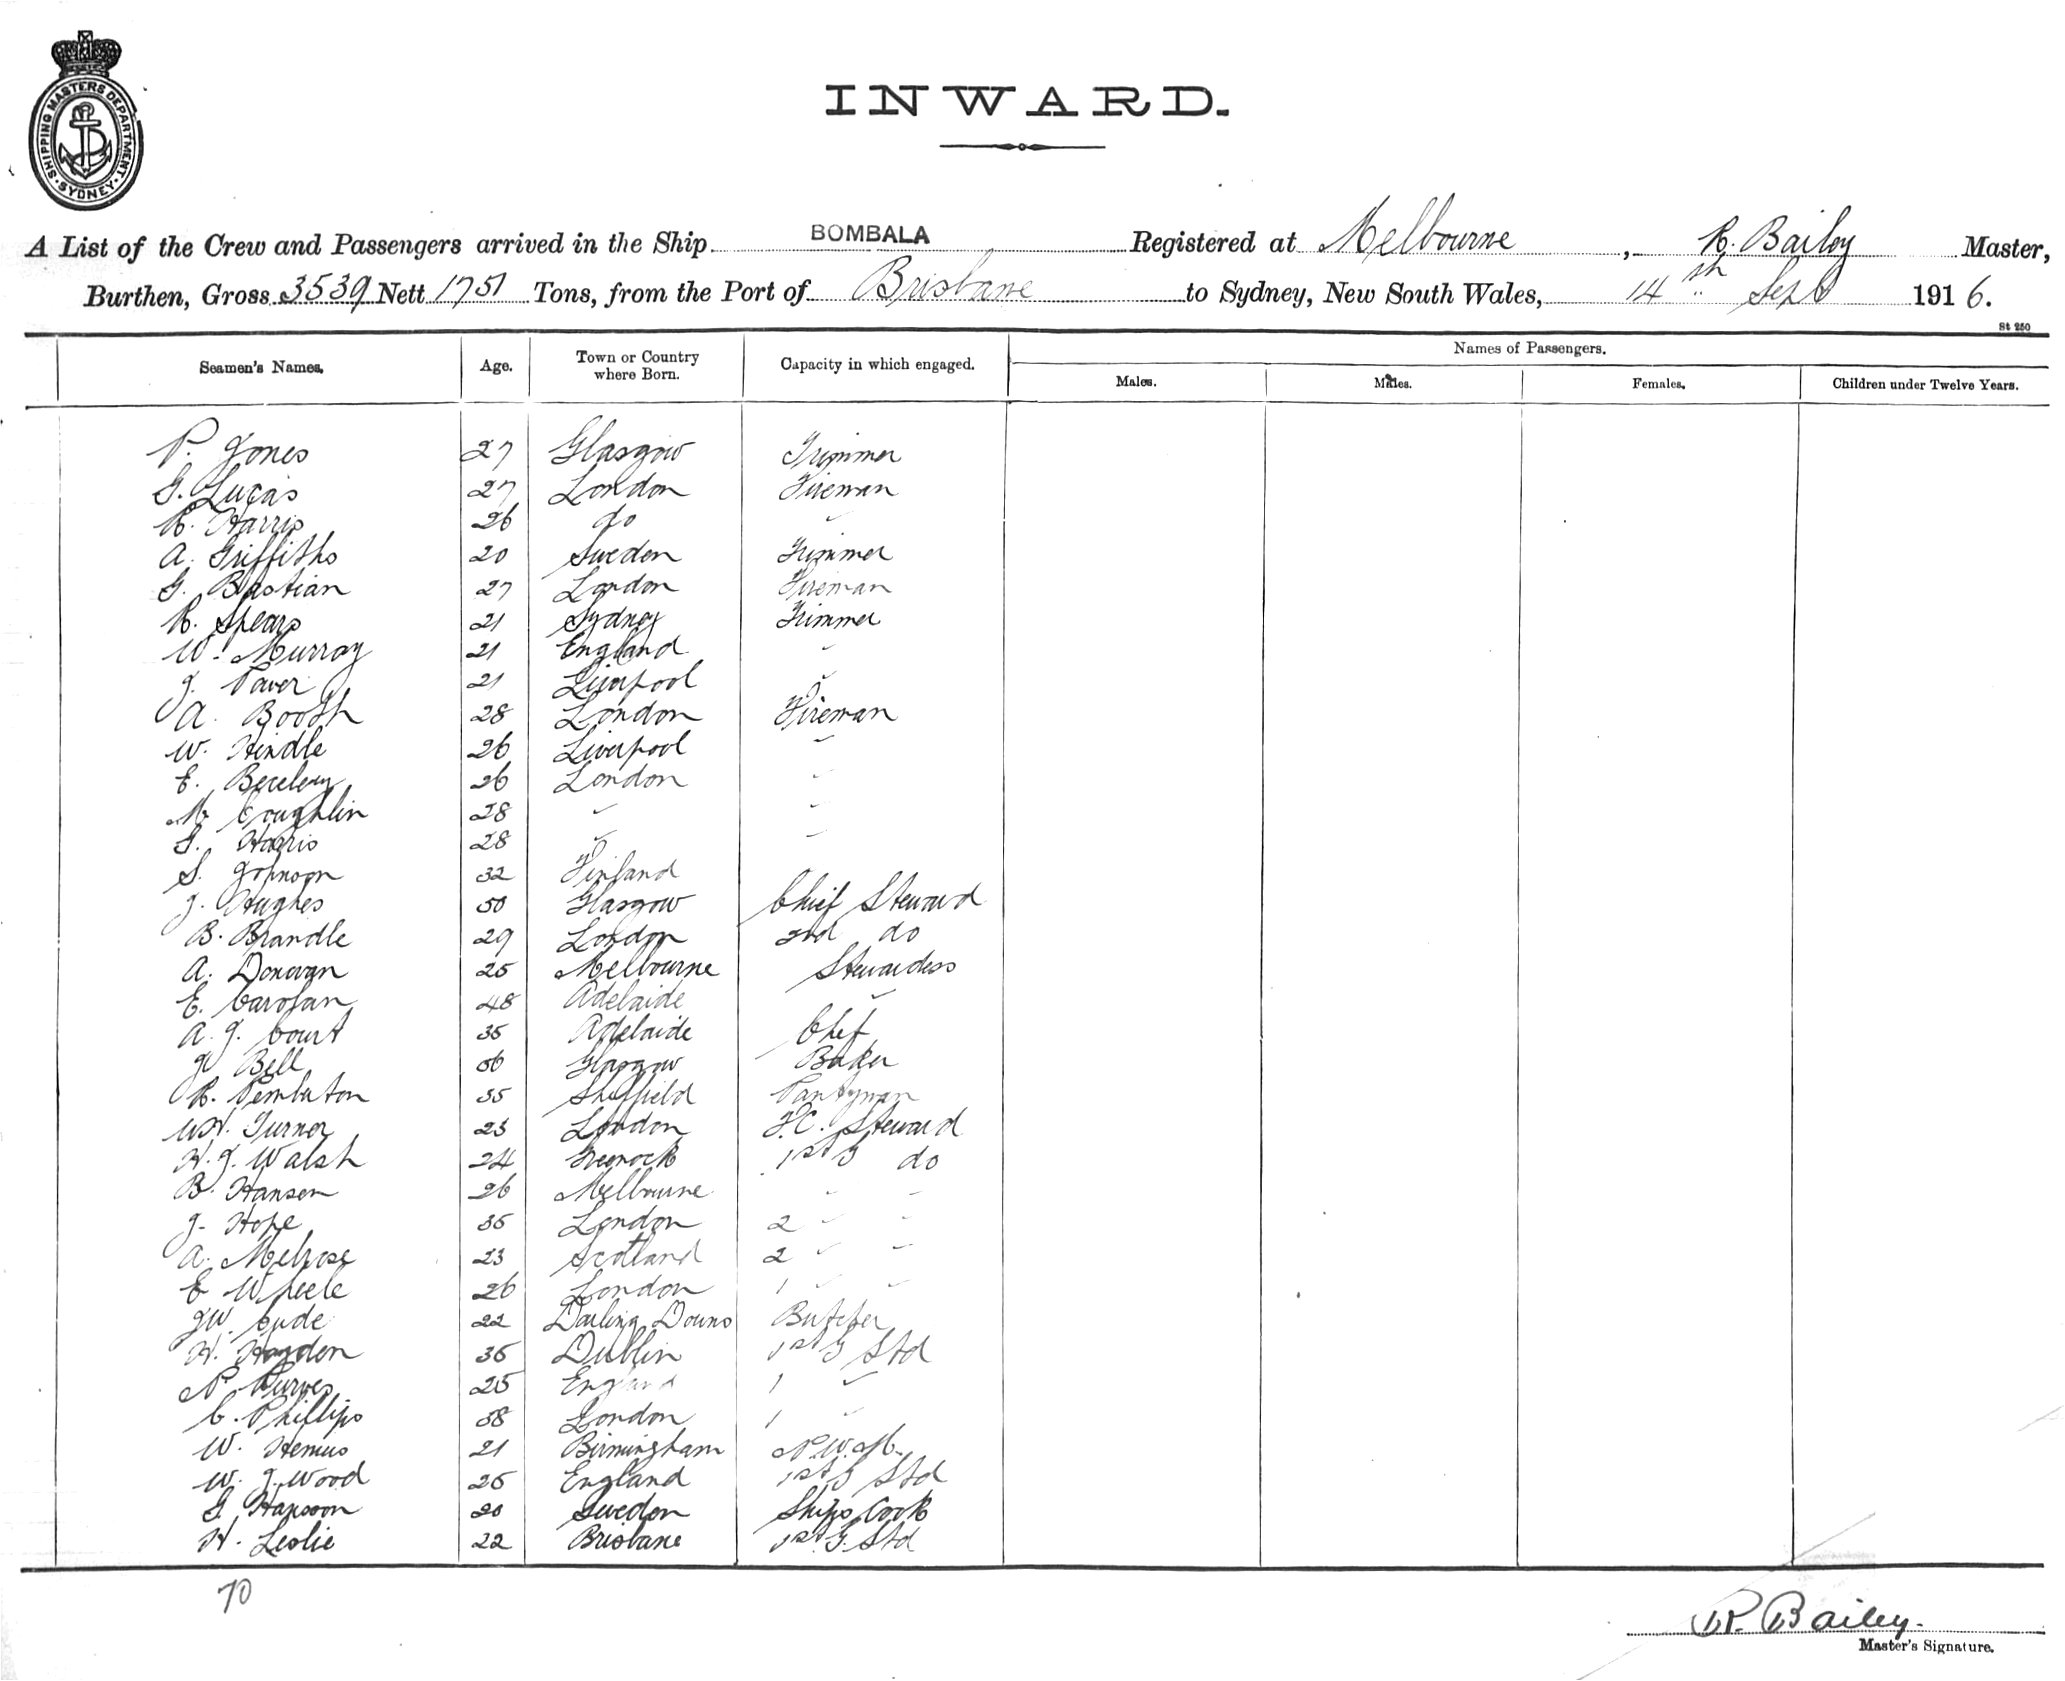 SHIPPING MASTERS DEPARTMENT
SYDNEY
INWARD.
A List of the Crew and Passengers arrived in the Ship BOMBALA Registered at Melbourne, R. Bailey Master,
Burthen, Gross 3539 Nett 1751 Tons, from the Port of Brisbane to Sydney, New South Wales, 14th Sept 1916.
St 250
Seamen's Names. Age. Town or Country where Born. Capacity in which engaged. Names of Passengers.
Males. Males. Females. Children under Twelve Years.
P. Jones 27 Glasgow Trimmer
G. Lucas 27 London Fireman
R. Harris 26 do "
A. Griffiths 20 Sweden Trimmer
G. Bastian 27 London Fireman
R. Spears 21 Sydney Trimmer
W. Murray 21 England "
J. Paver 21 Liverpool "
A. Booth 28 London Fireman
W. Hindle 26 Liverpool "
E. 26 London "
M. Coughlin 28 " "
G. Harris 28 " "
S. Johnson 32 Finland
J. Hughes 50 Glasgow Chief Steward
B. Brandle 29 London 2nd do
A. Donovan 25 Melbourne Stewardess
E. Carolan 48 Adelaide "
A. J. Court 35 Adelaide Chef
Bell 56 Glasgow Baker
R. Pemberton 35 Sheffield Pantryman
W.H. Turner 23 London F.C. Steward
H. J. Walsh 24 Greenock 1st G do
B. Hansen 26 Melbourne " "
J. Hope 35 London 2 " "
A. Melrose 23 Scotland 2 " "
E Wheele 26 London 1 " "
J.W. Cude 22 Darling Downs Butcher
H. Hayden 35 Dublin 1st G Std
P. Purves 25 England 1 "
C. Phillips 38 London 1 "
W. 21 Birmingham N.W.M.
W. J. Wood 25 England 1st G Std
G. Hansson 20 Sweden Ships Cook
H. Leslie 22 Brisbane 1st G. Std
70
R. Bailey.
Master's Signature.